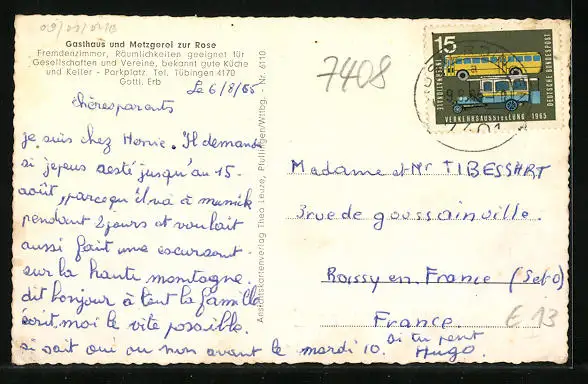 Gasthaus und Metzgerei zur Rose
Fremdenzimmer, Räumlichkeiten geeignet für
Gesellschaften und Vereine, bekannt gute Küche
und Keller - Parkplatz. Tel. Tübingen 4170
Gottl. Erb
Le 6/8/65
chèresparents
je suis chez Hervie. Il demande
si jepeus resté jusqu'au 15-
août, parcequ'il va à munick
pendant 2 jours et voulait
aussi fait une excursont
sur la haute momtagne.
dit bonjour à tout la famille
écrit. moi le vite possible.
si soit oui ou non avant le mardi 10. si tu peut
Hugo.
Ansichtskartenverlag Theo Leuze, Pfullingen/Wttbg. Nr. 6110
7408
15
DEUTSCHE BUNDESPOST
VERKEHRSAUSSTELLUNG 1965
Madame et Mr TIBESSART
3 rue de goussainville.
Roissy en France (Set O)
France.
E 13